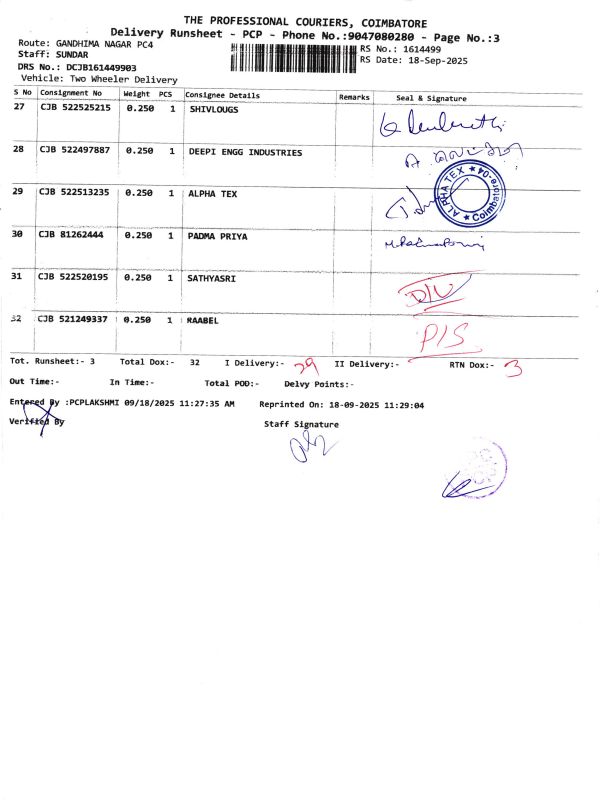 THE PROFESSIONAL COURIERS, COIMBATORE
Delivery Runsheet - PCP - Phone No.:9047080280 - Page No.:3
Route: GANDHIMA NAGAR PC4
Staff: SUNDAR
DRS No.: DCJB161449903
Vehicle: Two Wheeler Delivery
RS No.: 1614499
RS Date: 18-Sep-2025
S No Consignment No Weight PCS Consignee Details Remarks Seal & Signature
27 CJB 522525215 0.250 1 SHIVLOUGS
28 CJB 522497887 0.250 1 DEEPI ENGG INDUSTRIES
29 CJB 522513235 0.250 1 ALPHA TEX
ALPHA TEX ★ Coimbatore-04 ★
30 CJB 81262444 0.250 1 PADMA PRIYA
31 CJB 522520195 0.250 1 SATHYASRI D/L
32 CJB 521249337 0.250 1 RAABEL P/S
Tot. Runsheet:- 3 Total Dox:- 32 I Delivery:- 29 II Delivery:- RTN Dox:- 3
Out Time:- In Time:- Total POD:- Delvy Points:-
Entered By :PCPLAKSHMI 09/18/2025 11:27:35 AM Reprinted On: 18-09-2025 11:29:04
Verified By Staff Signature